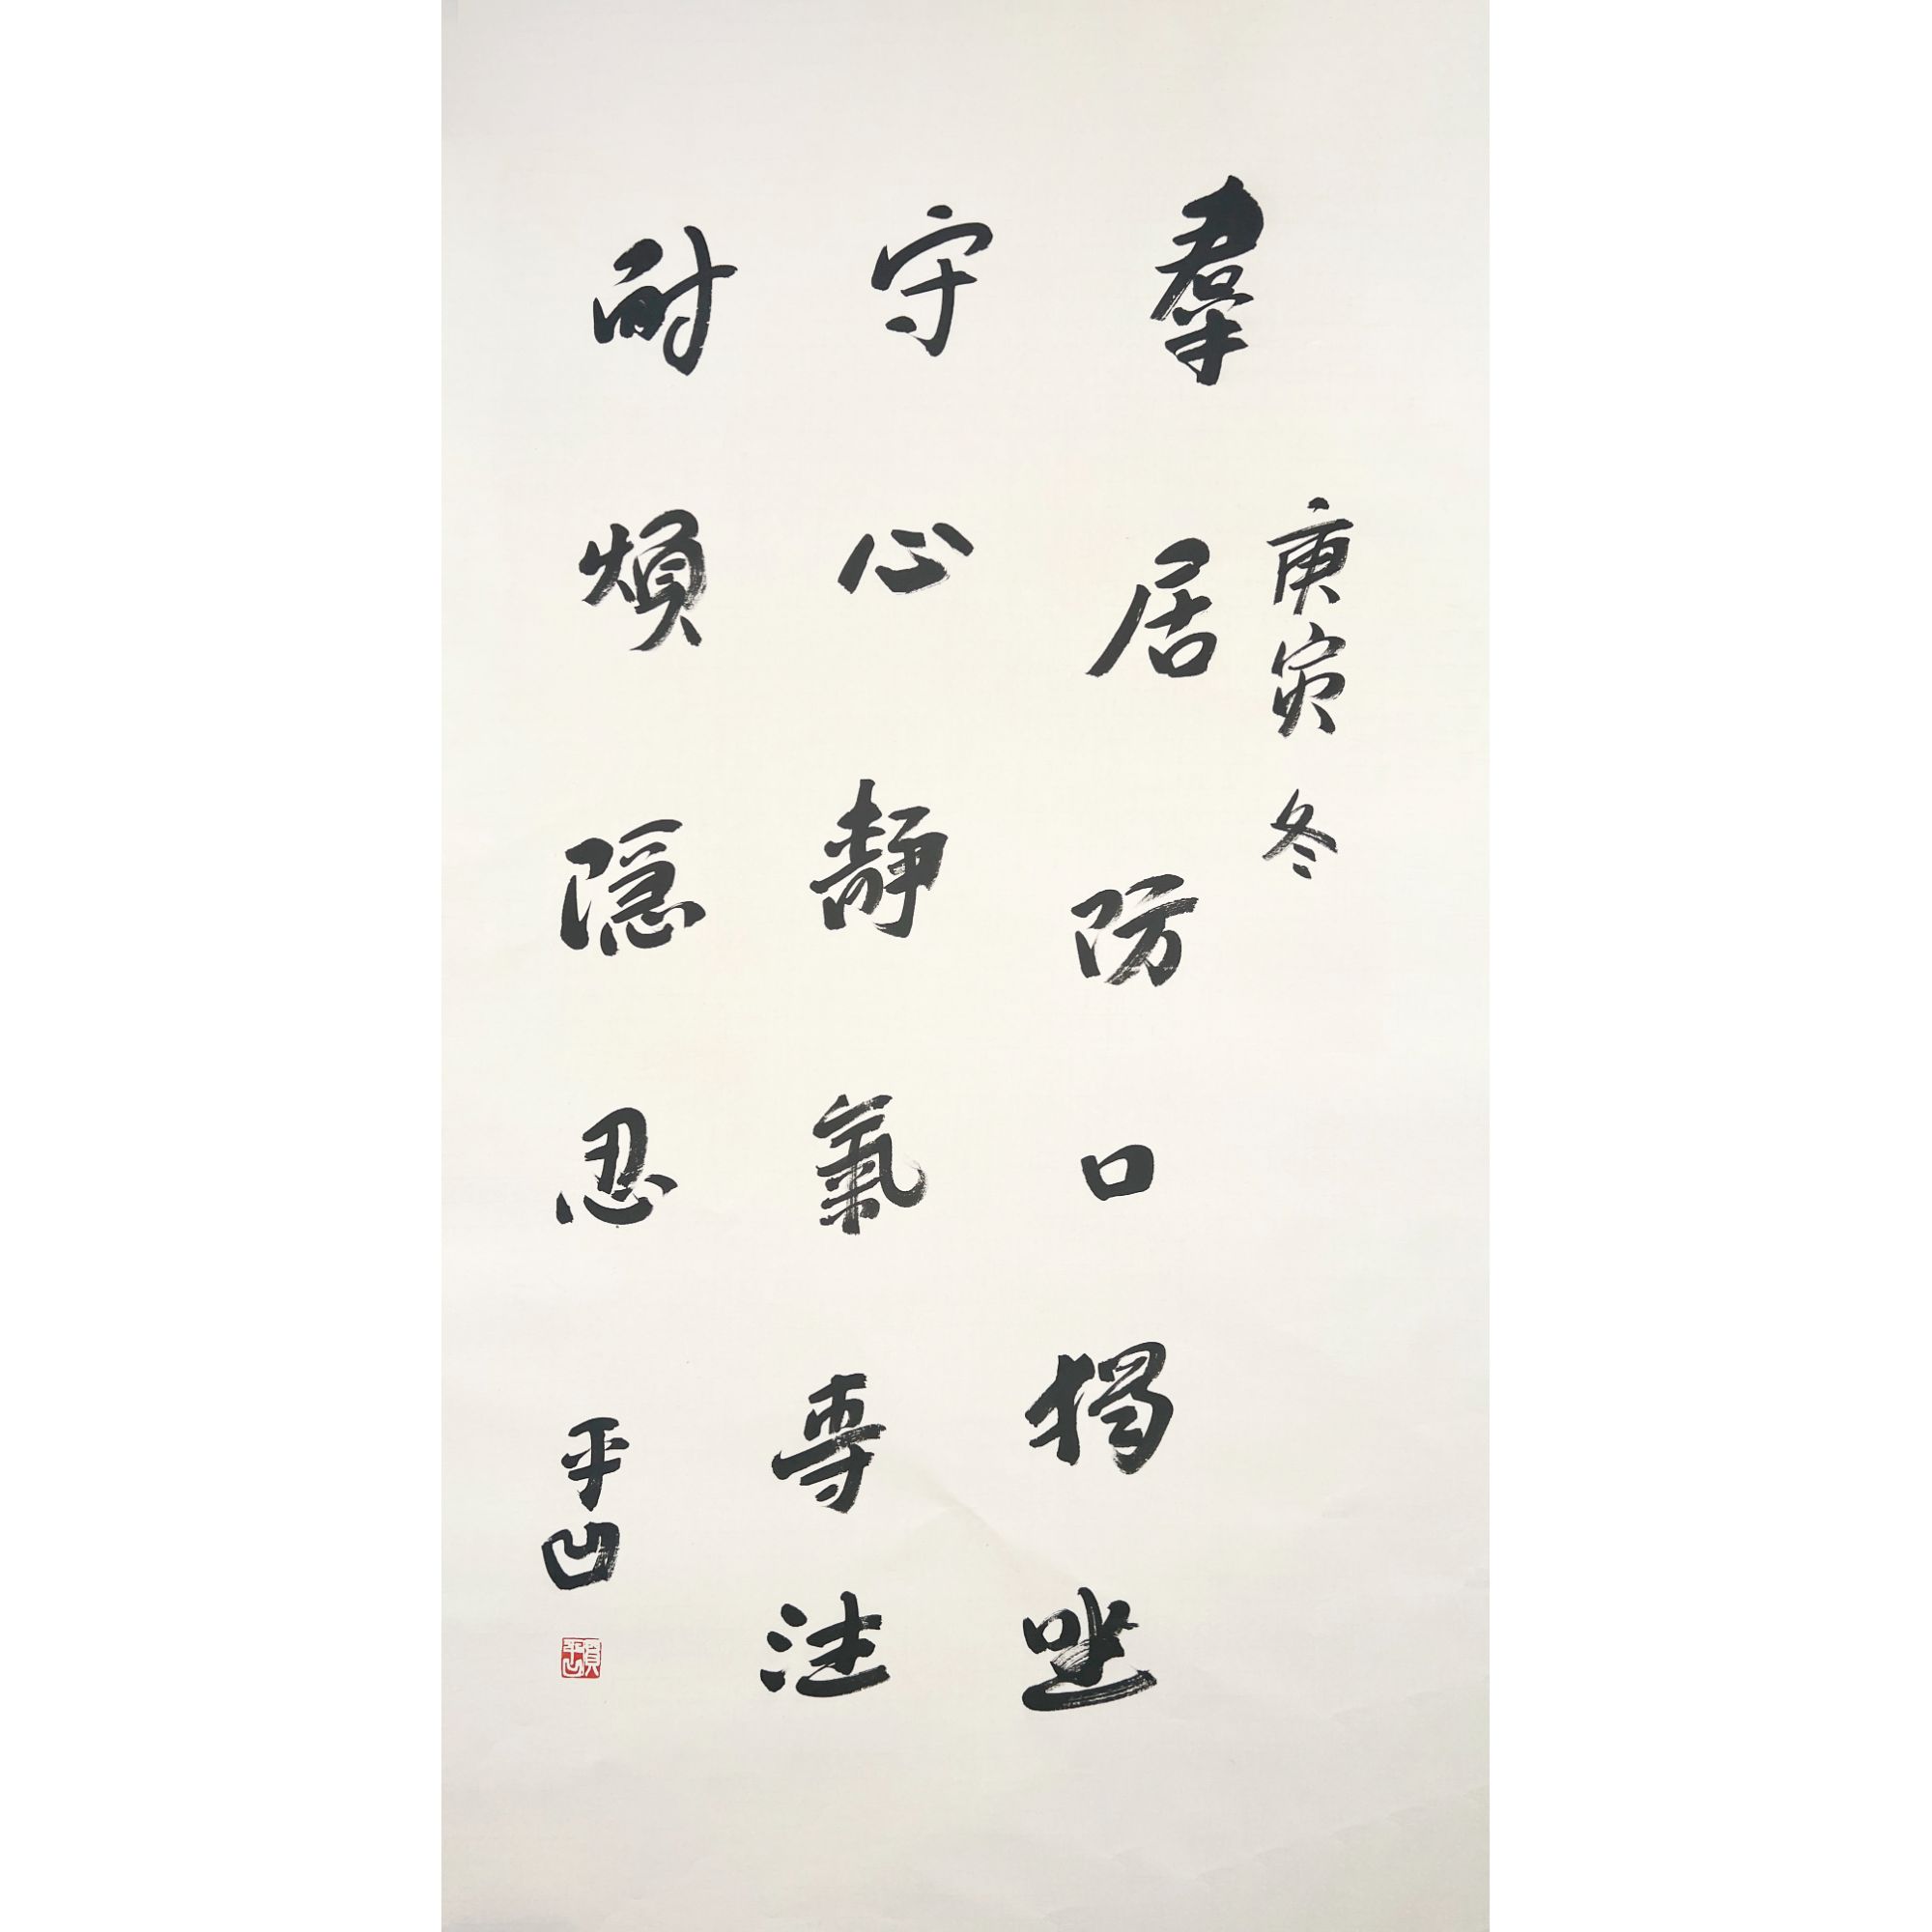 庚寅冬
羣居防口獨坐
守心靜氣專注
耐煩隱忍
平凹
賈平凹